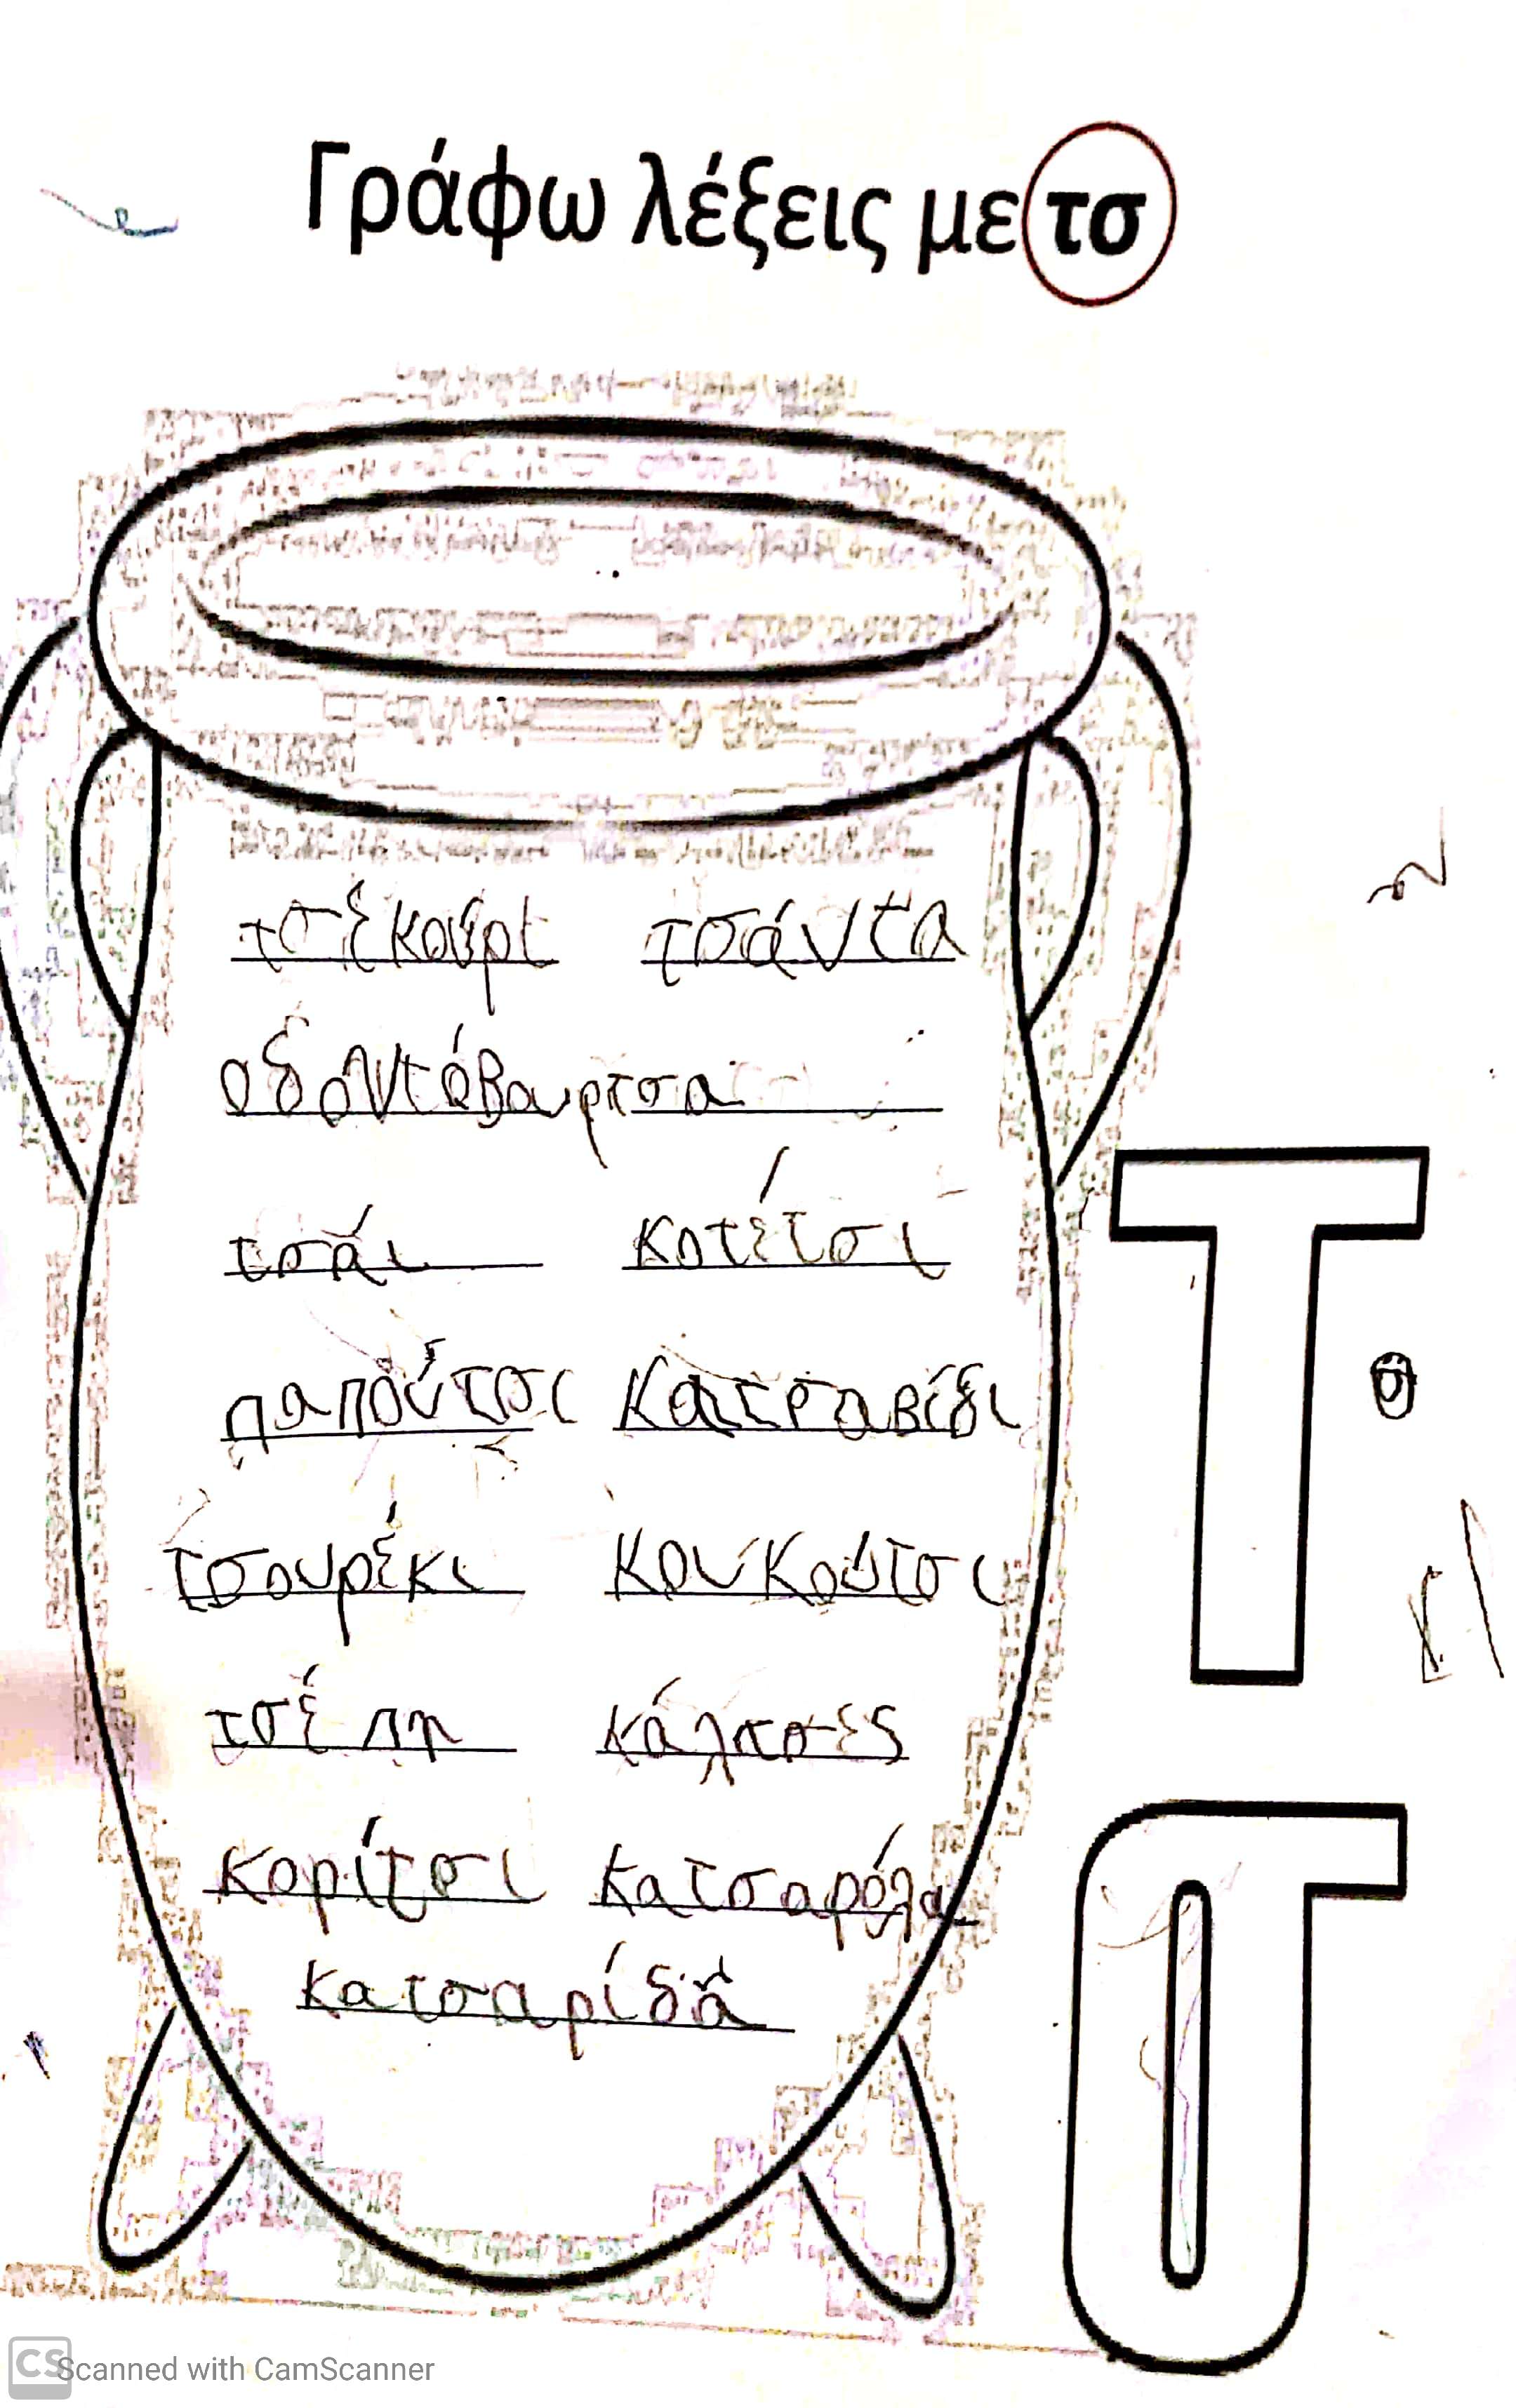 Γράφω λέξεις με τσ
τσέκούρι τσάντα
οδοντόβουρτσα
τσάι κοτέτσι
παπούτσι Κατσαβίδι
τσουρέκι κουκούτσι
τσέπη κάλτσες
κορίτσι κατσαρόλα
κατσαρίδα
Τ
σ
CS Scanned with CamScanner